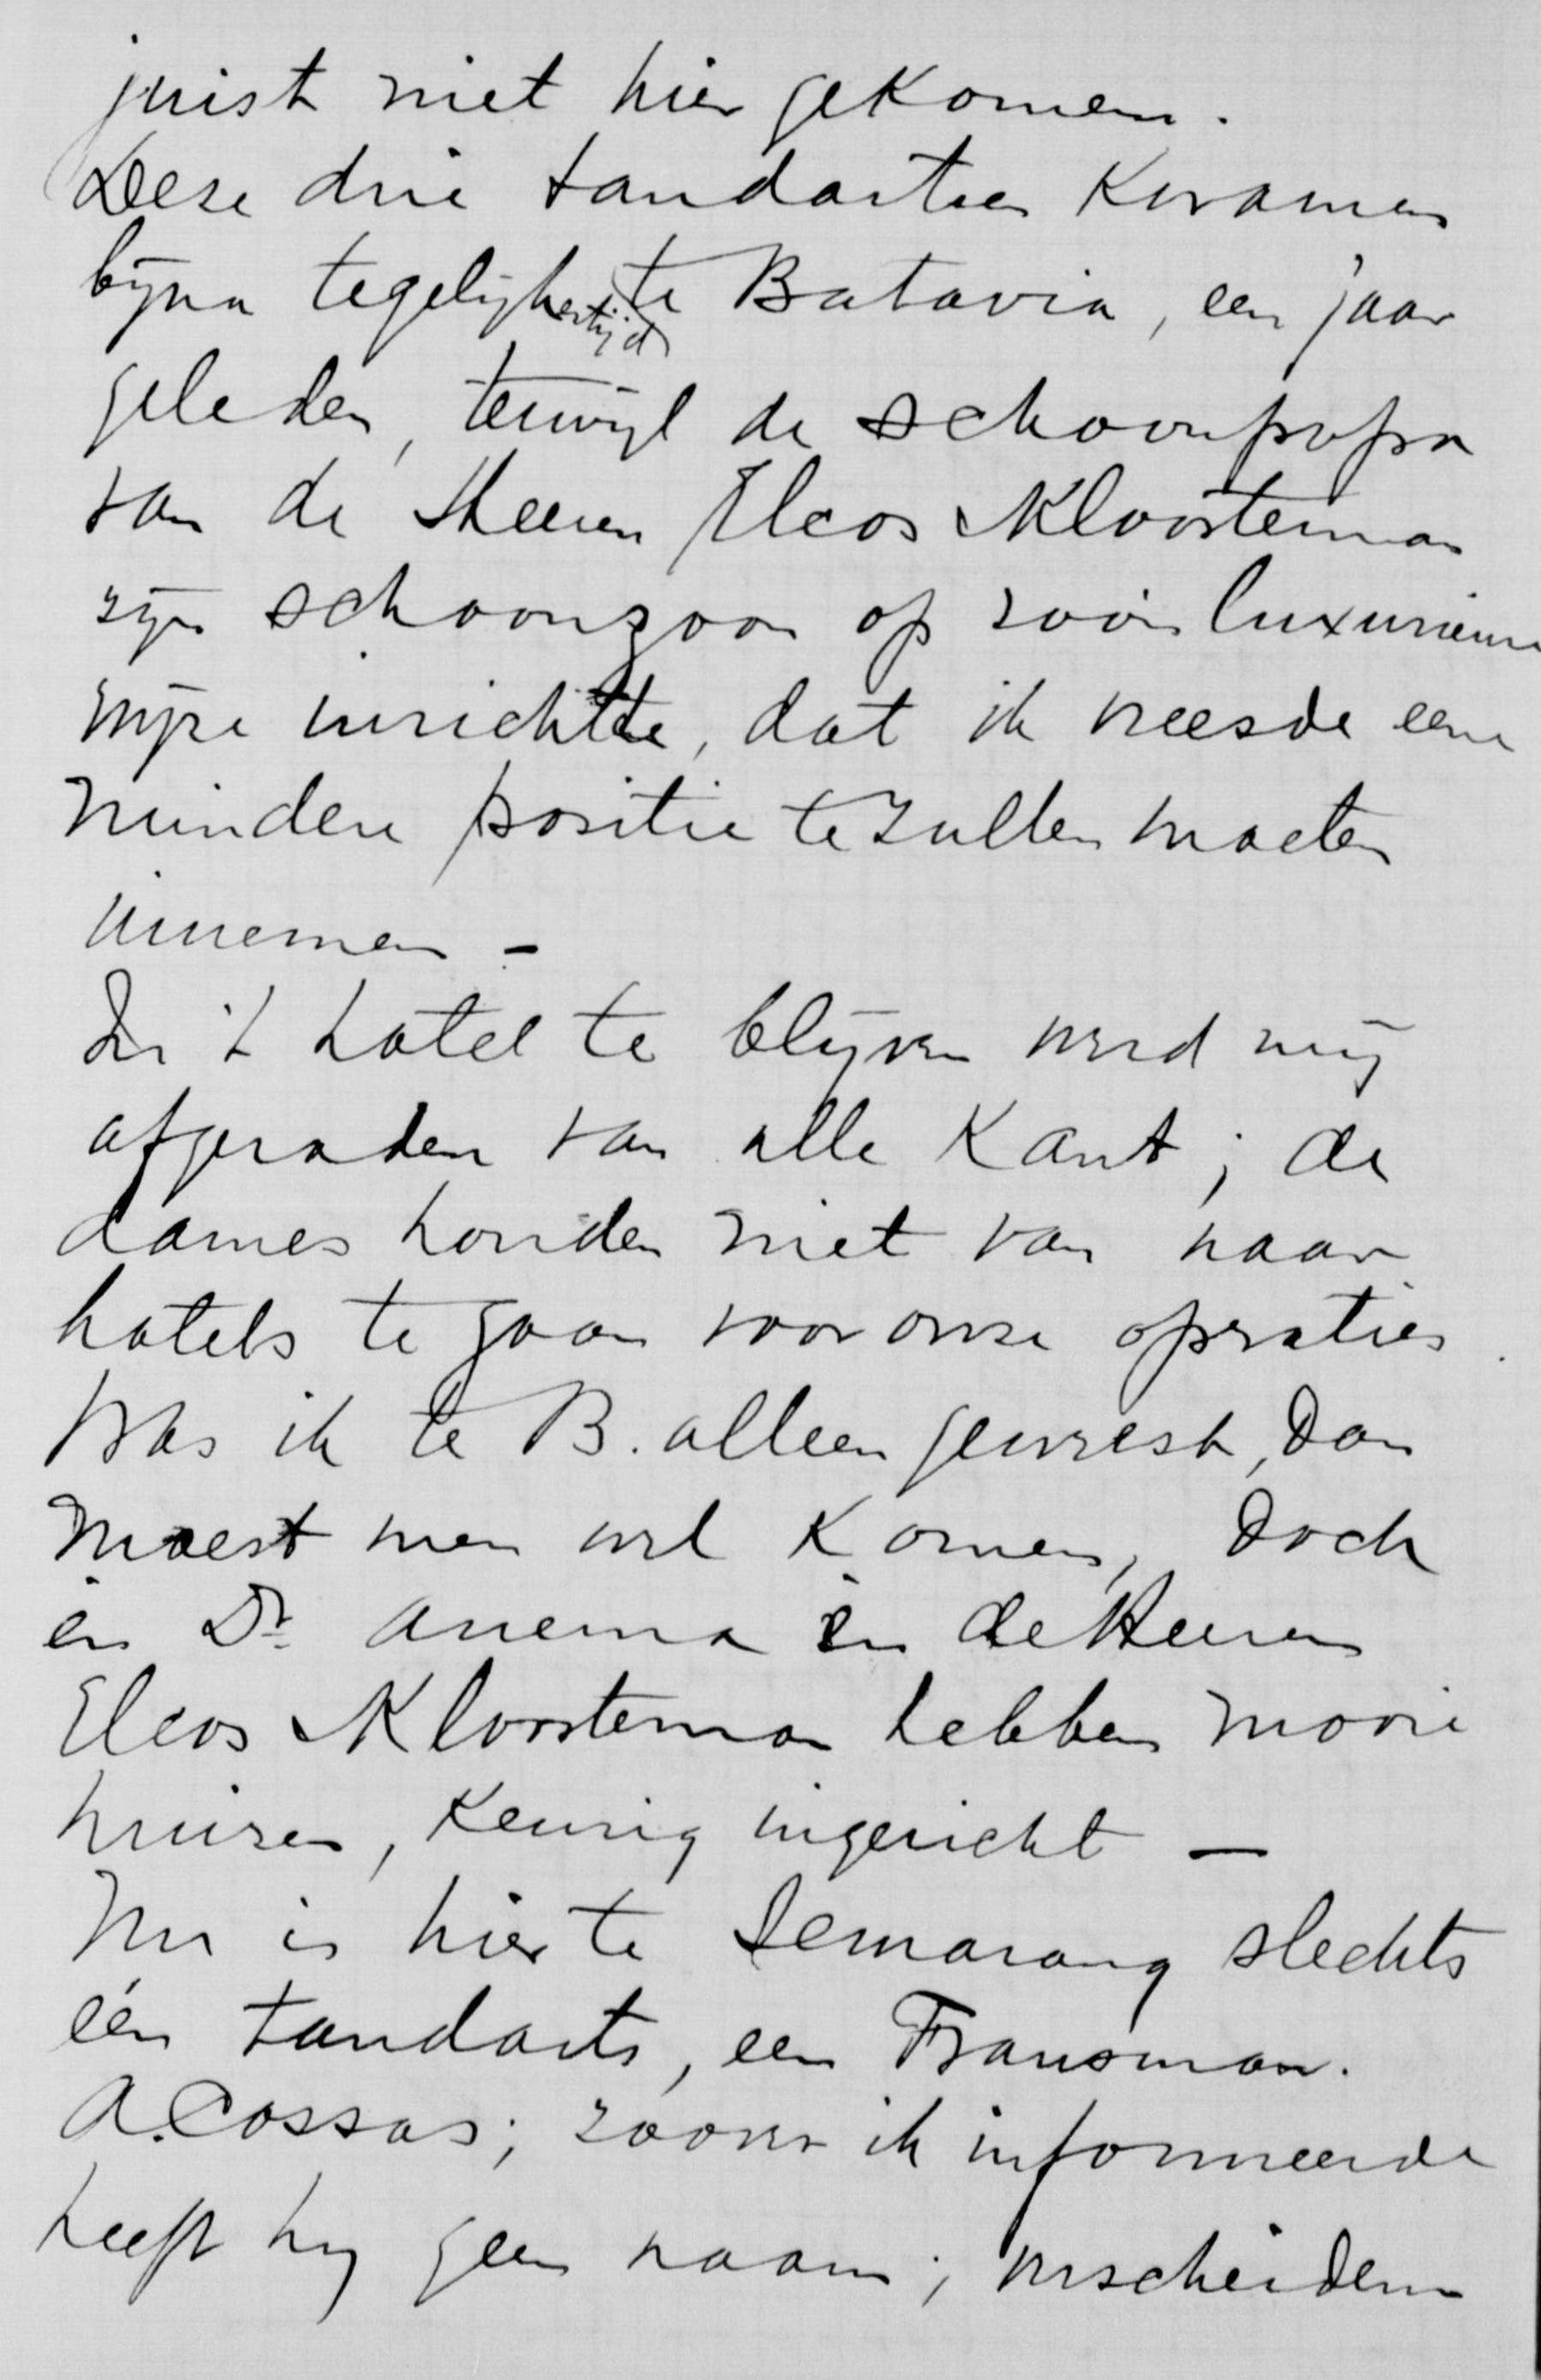 juist niet hier gekomen.
Deze drie tandartsen kwamen
bijna tegelijkertijd te Batavia, een jaar
geleden, terwijl de schoonpapa
van de Heeren Elcos Kloosterman
zijn schoonzoon op zoo'n luxurieuse
wijze inrichtte, dat ik vreesde eene
mindere positie te zullen moeten
innemen –
In 't hotel te blijven werd mij
afgeraden van alle kant; de
dames houden niet van naar
hotels te gaan voor onze operaties.
Was ik te B. alleen geweest, dan
moest men wel komen, doch
èn Dr. Anema èn de Heeren
Elcos Kloosterman hebben mooie
huizen, keurig ingericht –
Nu is hier te Semarang slechts
één tandarts, een Fransman.
A. Cossas; zoover ik informeerde
heeft hij geen naam; verscheidene